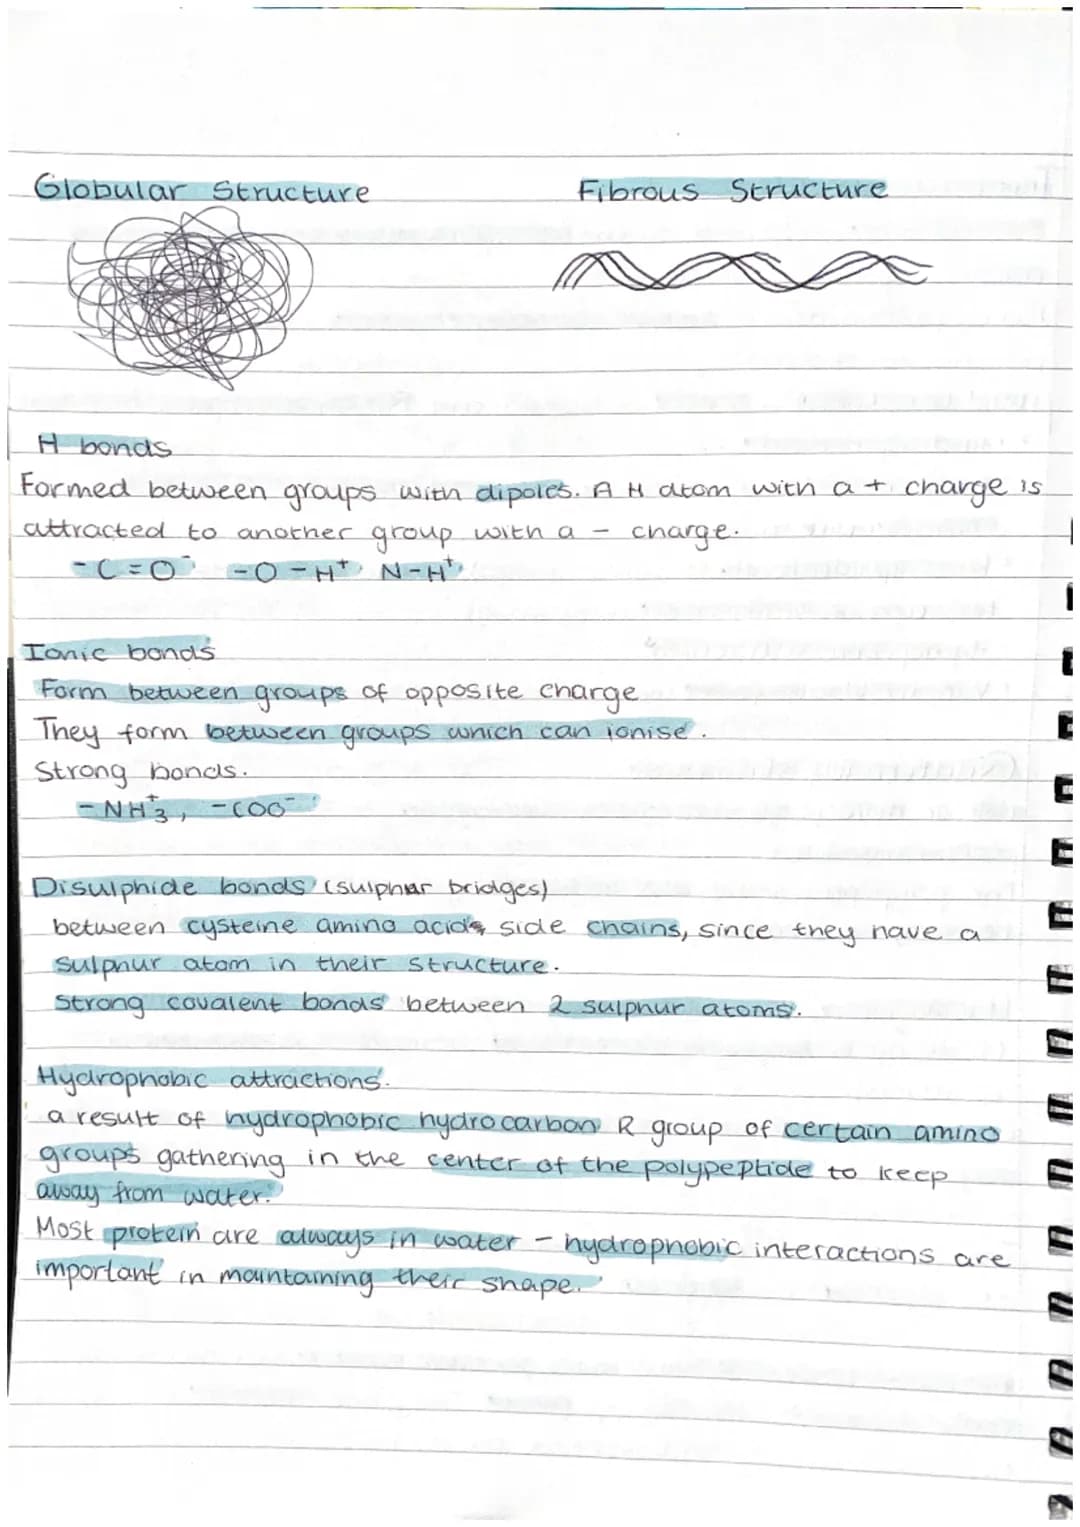 Globular Structure
Fibrous Structure
H bonds
Formed between groups with dipoles. A H atom with a + charge is
attracted to another group with a - charge.
-C=O⁻ -O-H⁺ N-H⁺
Ionic bonds
Form between groups of opposite charge
They form between groups which can ionise.
Strong bonds.
-NH₃⁺, -COO⁻
Disulphide bonds (sulphur bridges)
between cysteine amino acids side chains, since they have a
sulphur atom in their structure.
Strong covalent bonds between 2 sulphur atoms.
Hydrophobic attractions.
a result of hydrophobic hydrocarbon R group of certain amino
groups gathering in the center of the polypeptide to keep
away from water.
Most protein are always in water - hydrophobic interactions are
important in maintaining their shape.